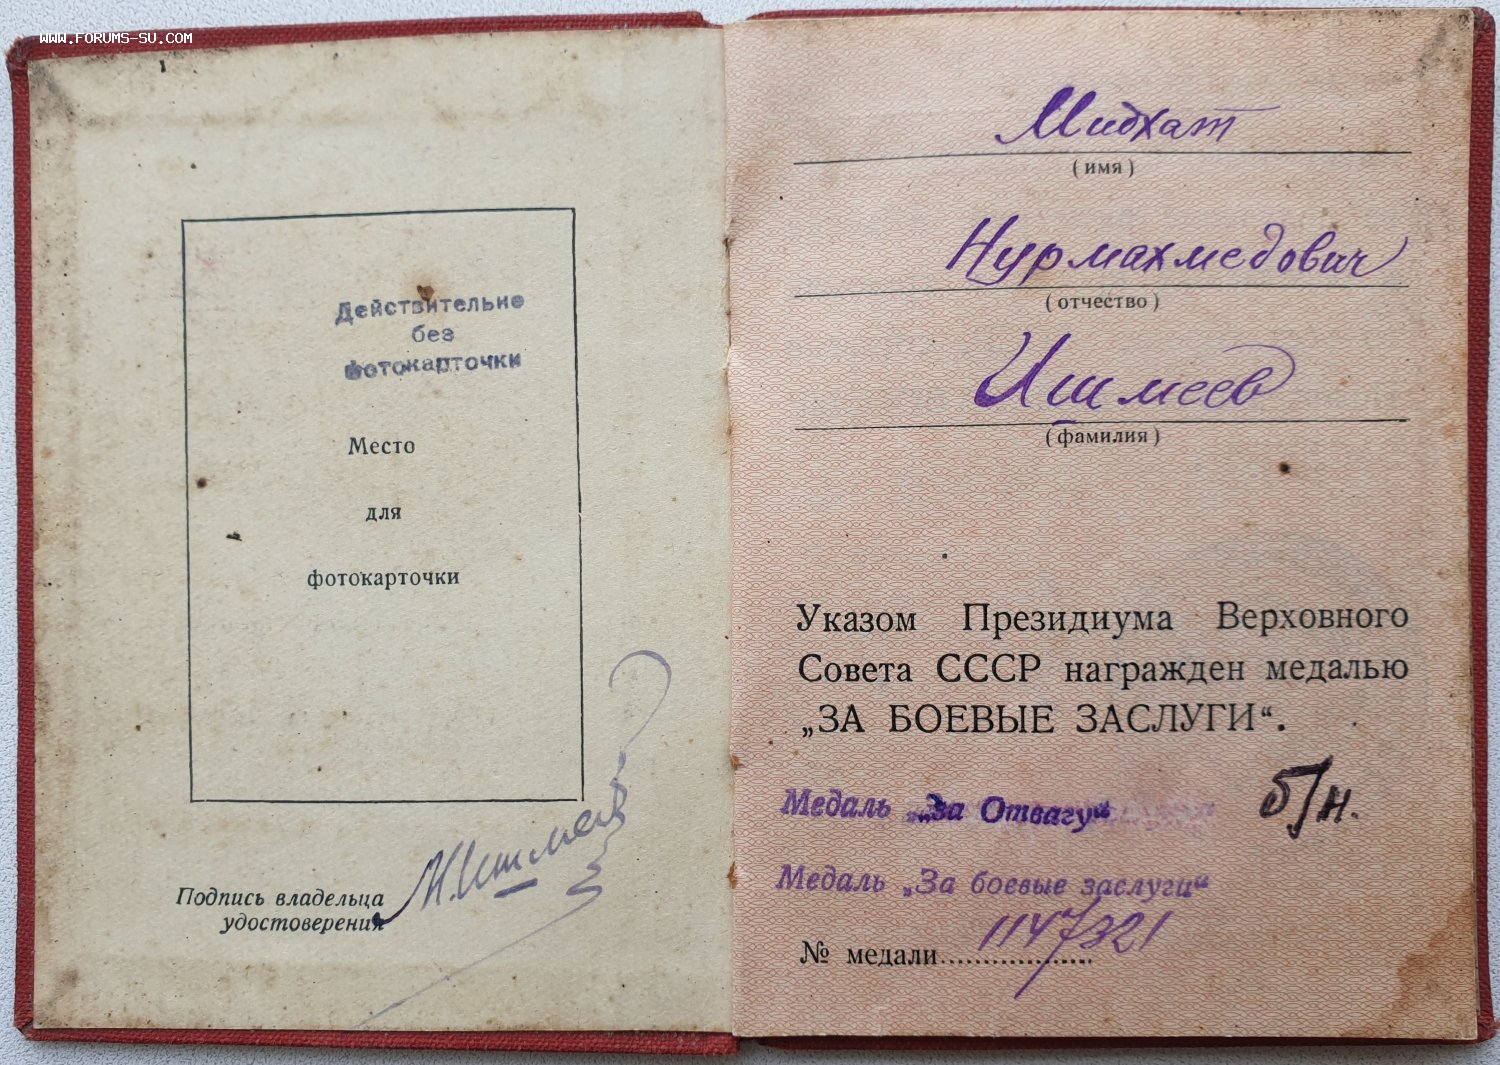 www.forums-su.com
Действительно
без
фотокарточки
Место
для
фотокарточки
Подпись владельца
удостоверения
М.Ишмеев
Мидхат
(имя)
Нурмахмедович
(отчество)
Ишмеев
(фамилия)
Указом Президиума Верховного
Совета СССР награжден медалью
„ЗА БОЕВЫЕ ЗАСЛУГИ“.
Медаль „За Отвагу“ б/н.
Медаль „За боевые заслуги“
№ медали 1147321